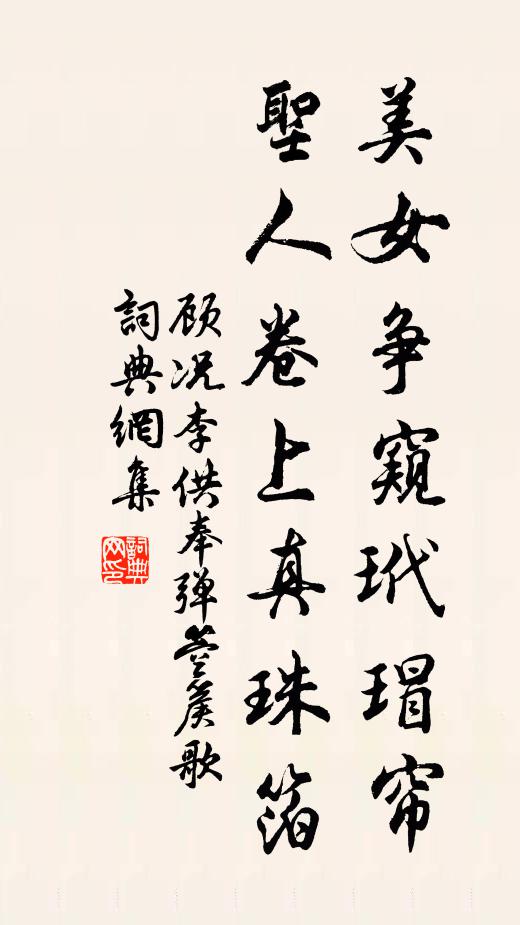 美女争窺玳瑁帘
聖人卷上真珠箔
顾况李供奉弹箜篌歌
詞典網集
詞典网印